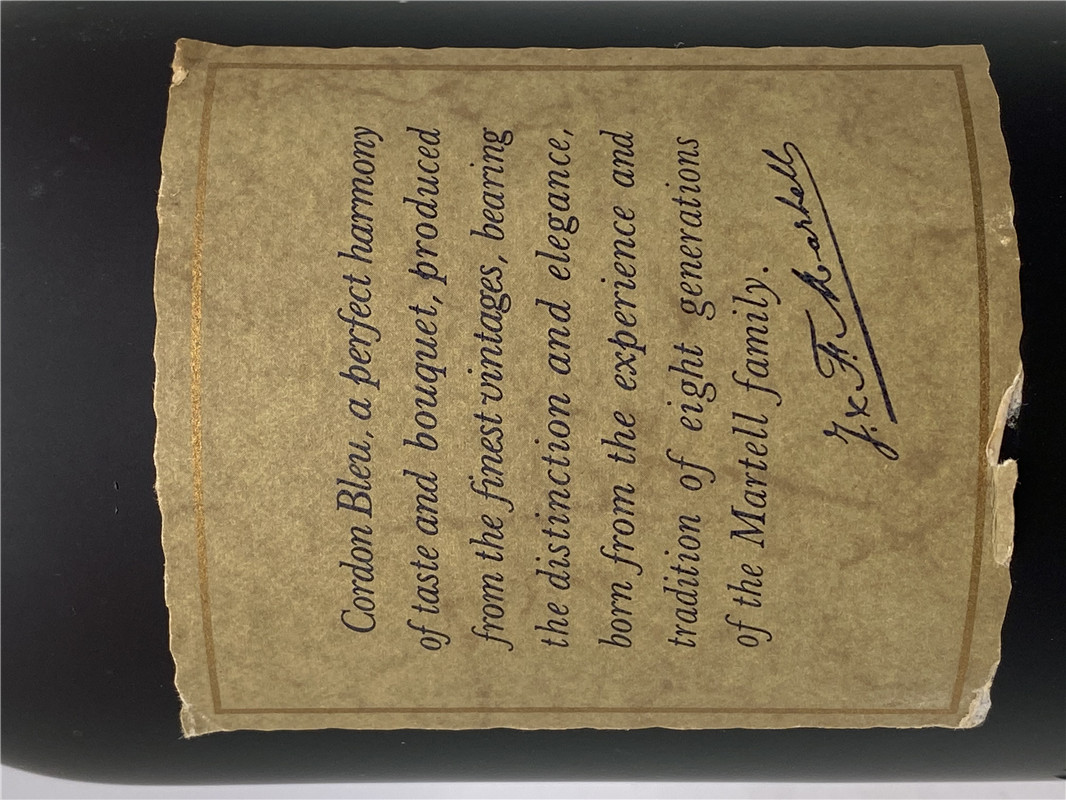 Cordon Bleu, a perfect harmony
of taste and bouquet, produced
from the finest vintages, bearing
the distinction and elegance,
born from the experience and
tradition of eight generations
of the Martell family.
J. & F. Martell